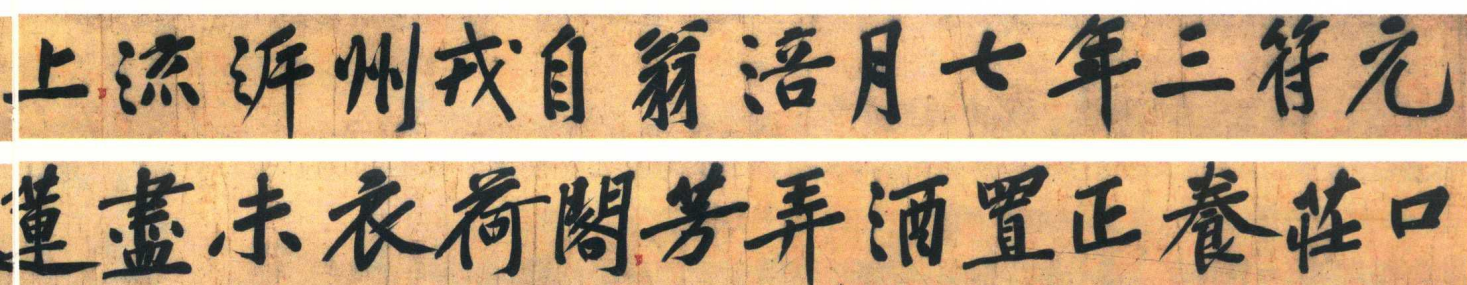 元符三年七月涪翁自戎州泝流上
口莊養正置酒弄芳閣荷衣未盡蓮